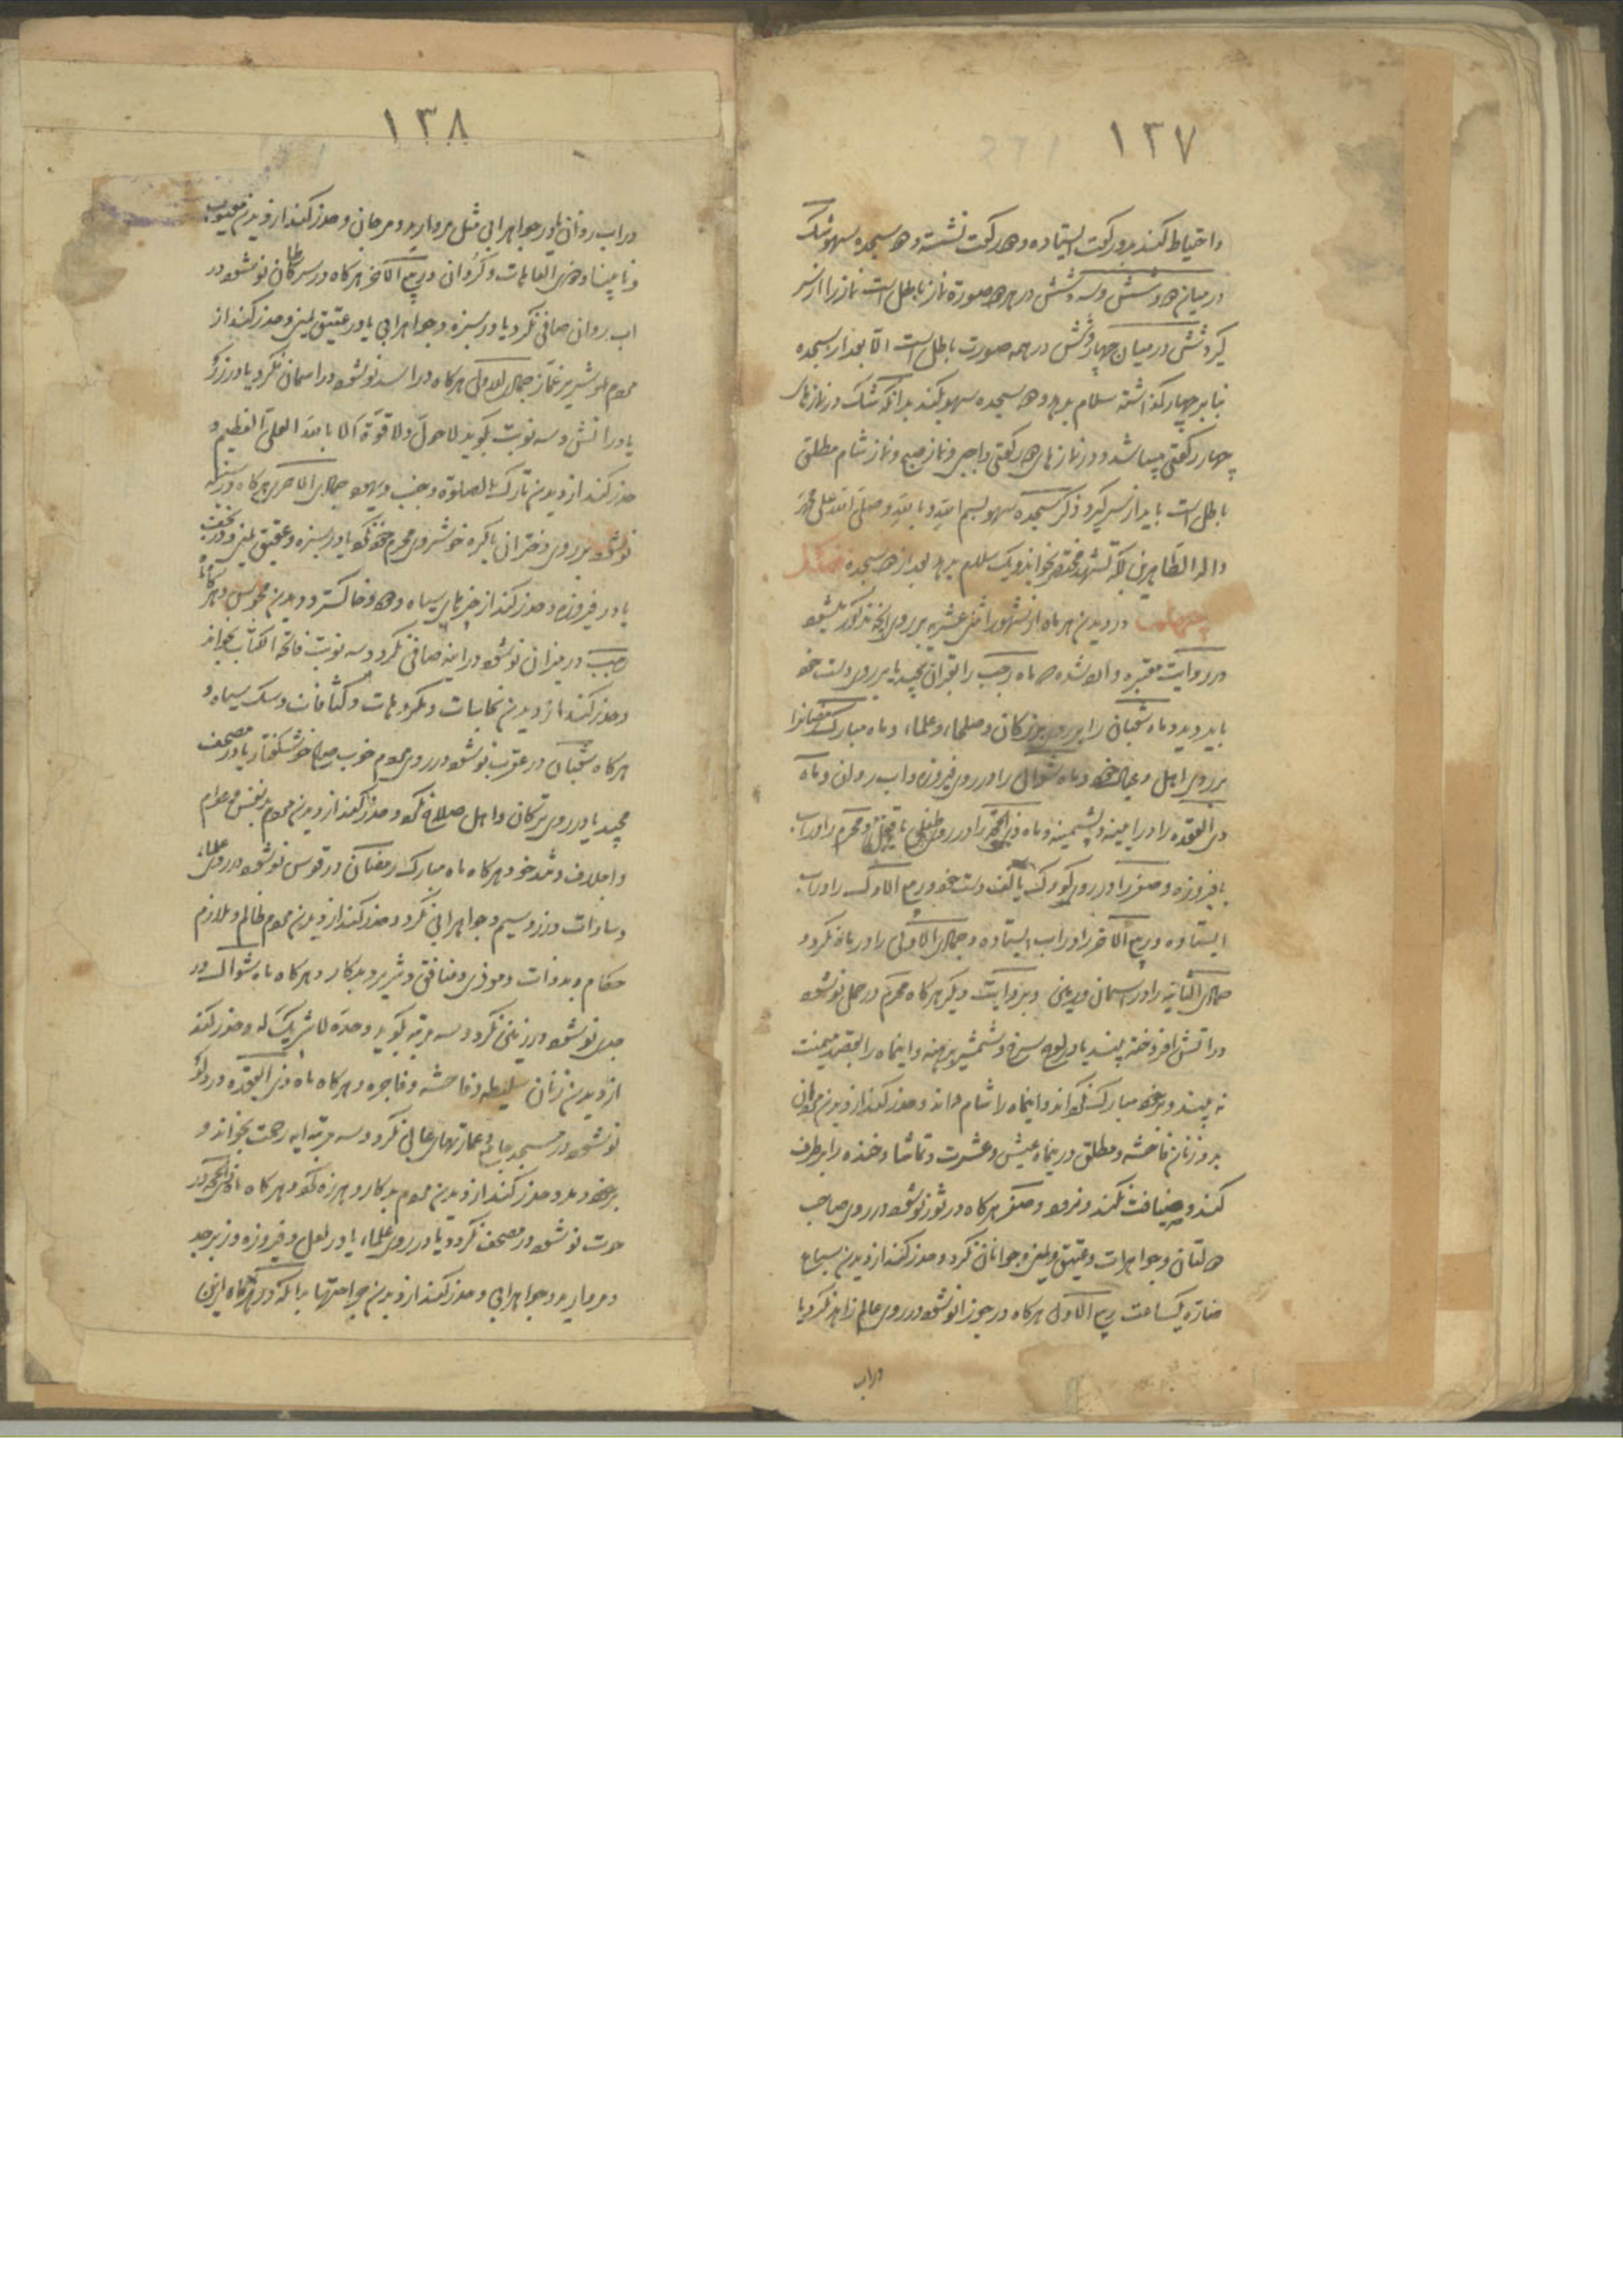 ١٣٧
و احتیاط کند بدو رکعت ایستاده و دو رکعت نشسته و دو سجده سهو شک
در میان دو و شش و سه و شش در هر دو صورة نماز باطل است نماز را از سر
گیرد شک در میان چهار و شش در همه صورت باطل است الا بعد از سجده
بنا بر چهار گذاشته سلام بدهد و دو سجده سهو بکند بدانکه شک در نمازهای
چهار رکعتی میباشد و در نمازهای دو رکعتی واجبی و نماز صبح و نماز شام مطلق
باطل است باید از سر گیرد و ذکر سجده سهو بسم الله و بالله و صلی الله علی محمد
و آله الطاهرین بلکه تشهد مختصر بخواند و یک سلام بدهد بعد از دو سجده
در دیدن هر ماه از شهور اثنی عشریه بر روی آنچه مذکور میشود
در روایت معتبره وارد شده که ماه رجب را بقرآن مجید یا بر روی دست خود
باید دید و ماه شعبان را بر روی بزرگان و صلحا و علما و ماه مبارک رمضان را
بر روی اهل و عیال خود و ماه شوال را در روی فیروزه و آب روان و ماه
ذی القعده را در آینه و پشمینه و ماه ذی الحجه را در روی طفلی و محرم را در آب
با فیروزه و صفر را در روی کودک یا کف دست خود و ربیع الاول را در آب
ایستاده و ربیع الآخر را در آب ایستاده و جمادی الاولی را در نگرد و
جمادی الثانیه را در آسمان و زمین و بروایت دیگر هر گاه محرم در حمل نو شود
در آتش افروخته بیند یا در لوح سرخ و شمشیر برهنه و اینماه را بقصد میمنت
نه بیند و بر خود مبارک نگرداند و اینماه را شام داند و حذر کند از دیدن مردان
بد و زنان فاحشه و مطلق در ینماه عیش و عشرت و تماشا و خنده را بر طرف
کند و ضیافت نکند و نرود و صفر هر گاه در ثور نو شود در روی صاحب
دولتان و جواهرات و عقیق و یمنی و جوانان نگرد و حذر کند از دیدن سباع
ضاره یکساعت ربیع الاول هر گاه در جوزا نو شود در روی عالم زاهد نگرد یا
در آب
١٣٨
در آب روان یا در جواهر آبی مثل مروارید و مرجان و حذر کند از دیدن معیوب
و نابینا و العاهات و کران و ربیع الآخر هر گاه در سرطان نو شود در
آب روان صافی نگرد یا در سبزه و جواهر آبی یا در عقیق یمنی و حذر کند از
مردم شریر غماز جمادی الاولی هر گاه در اسد نو شود در آسمان نگرد یا در زر
یا در آتش و سه نوبت بگوید لا حول و لا قوة الا بالله العلی العظیم و
حذر کند از دیدن تارک الصلوة و جنب و یهود جمادی الآخر هر گاه در سنبله
نو شود بر روی دختران باکره خوشروی محرم خود نگرد یا در سبزه و عقیق یمنی و در نجف
یا در فیروزه و حذر کند از چیزهای سیاه و دود و خاکستر و دیدن مجوس و هر گاه
رجب در میزان نو شود در آینه صافی نگرد و سه نوبت فاتحه الکتاب بخواند
و حذر کند از دیدن نجاسات و مکروهات و کثافات و سک سیاه و
هر گاه شعبان در عقرب نو شود در روی مردم خوب خوشگفتار یا در مصحف
مجید یا در روی ترکان و اهل صلاح نگرد و حذر کند از دیدن مردم بد نفس و حرام
و اجلاف و تند خو و هر گاه ماه مبارک رمضان در قوس نو شود در روی علما
و سادات و زر و سیم و جواهر آبی نگرد و حذر کند از دیدن مردم ظالم و ملازم
حکام و بد ذات و موذی و منافق و شریر و بدکار و هر گاه ماه شوال در
جدی نو شود در زمین نگرد و سه مرتبه بگوید وحده لا شریک له و حذر کند
از دیدن زنان سلیطه و فاحشه و فاجره و هر گاه ماه ذی القعده در دلو
نو شود در مسجد جامع و عمارتهای عالی نگرد و سه مرتبه آیه رحمت بخواند و
بر خود دمد و حذر کند از دیدن مردم بدکار و هرزه گو و هر گاه ماه ذی الحجه در
حوت نو شود در مصحف نگرد یا در روی علما یا در لعل و فیروزه و زبرجد
و مروارید و جواهر آبی و حذر کند از دیدن جراحتها بدانکه در هر گاه از این